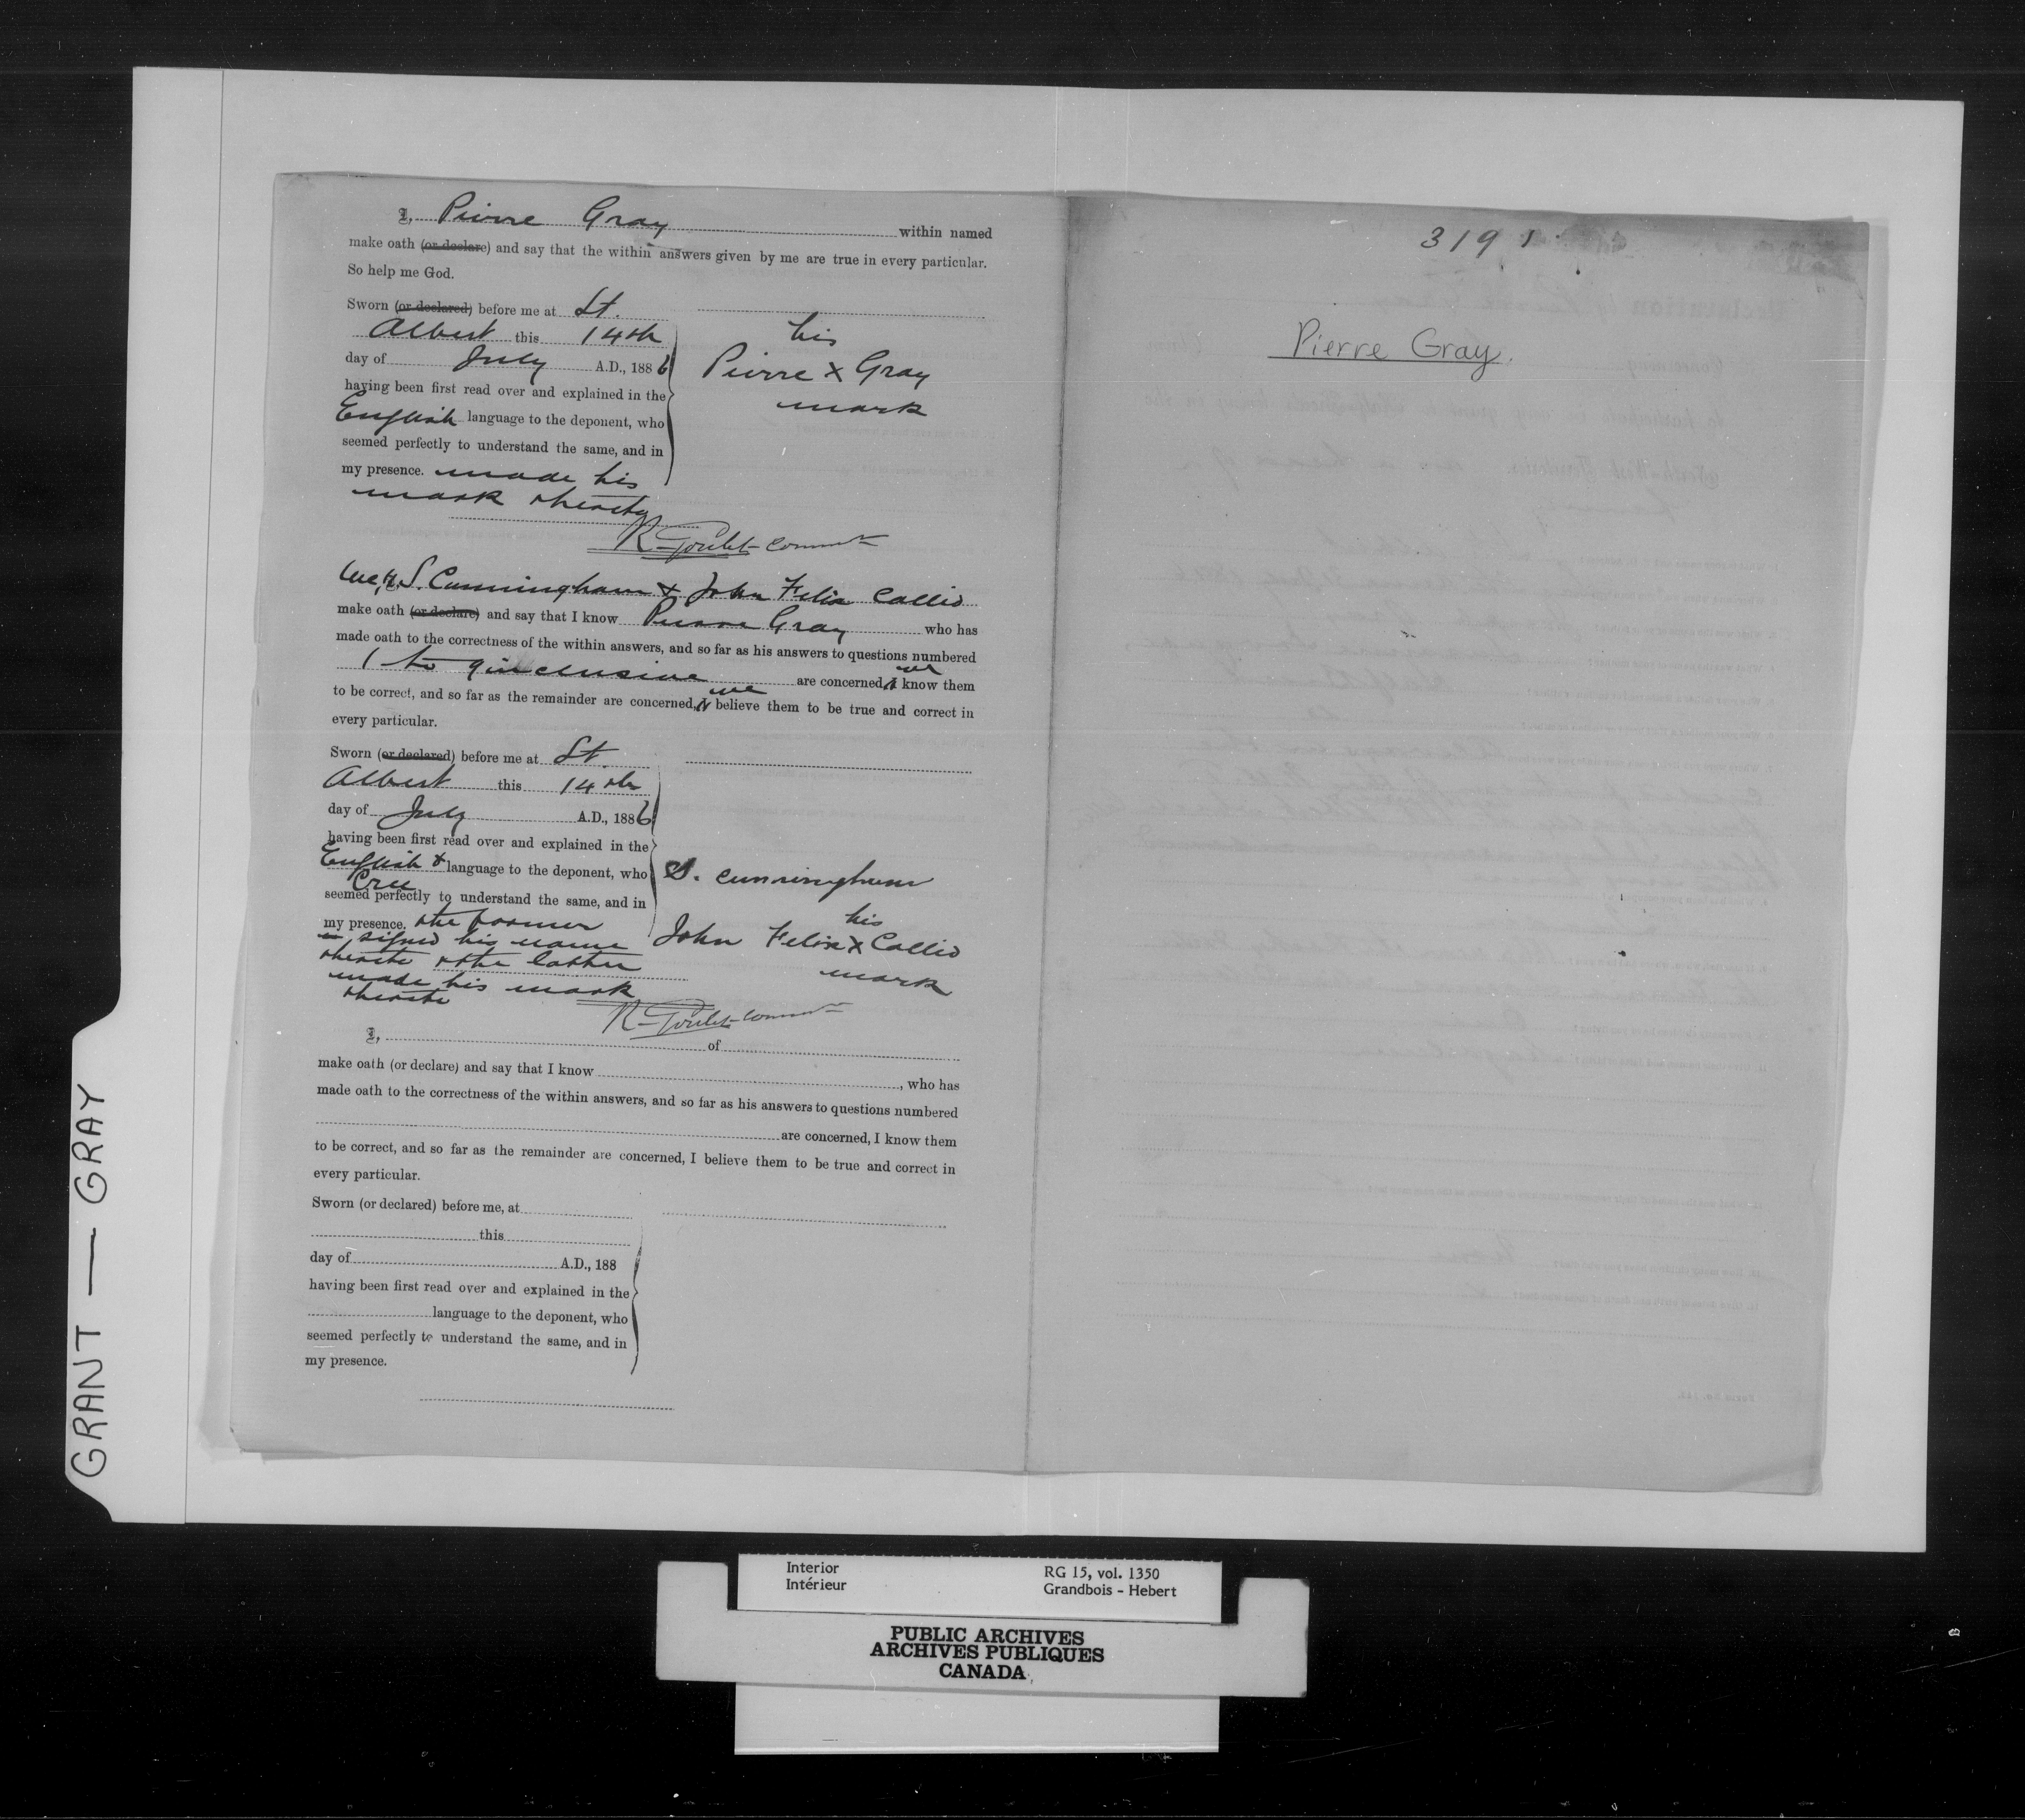 I, Pierre Gray within named
make oath (or declare) and say that the within answers given by me are true in every particular.
So help me God.
Sworn (or declared) before me at St.
Albert this 14th
day of July A.D., 1886
having been first read over and explained in the
English language to the deponent, who
seemed perfectly to understand the same, and in
my presence. made his
mark thereto
his
Pierre X Gray
mark
R Goulet Commr
We, S. Cunningham & John Felix Callio
make oath (or declare) and say that I know Pierre Gray who has
made oath to the correctness of the within answers, and so far as his answers to questions numbered
1 to 9 inclusive are concerned, I we know them
to be correct, and so far as the remainder are concerned, I we believe them to be true and correct in
every particular.
Sworn (or declared) before me at St.
Albert this 14th
day of July A.D., 1886
having been first read over and explained in the
English & Cree language to the deponent, who
seemed perfectly to understand the same, and in
my presence. the former
signed his name
thereto & the latter
made his mark
thereto
S. Cunningham
his
John Felix X Callio
mark
R Goulet Commr
I, of
make oath (or declare) and say that I know , who has
made oath to the correctness of the within answers, and so far as his answers to questions numbered
are concerned, I know them
to be correct, and so far as the remainder are concerned, I believe them to be true and correct in
every particular.
Sworn (or declared) before me, at
this
day of A.D., 188
having been first read over and explained in the
language to the deponent, who
seemed perfectly to understand the same, and in
my presence.
3191
Pierre Gray.
GRANT — GRAY
Interior
Intérieur
RG 15, vol. 1350
Grandbois - Hebert
PUBLIC ARCHIVES
ARCHIVES PUBLIQUES
CANADA